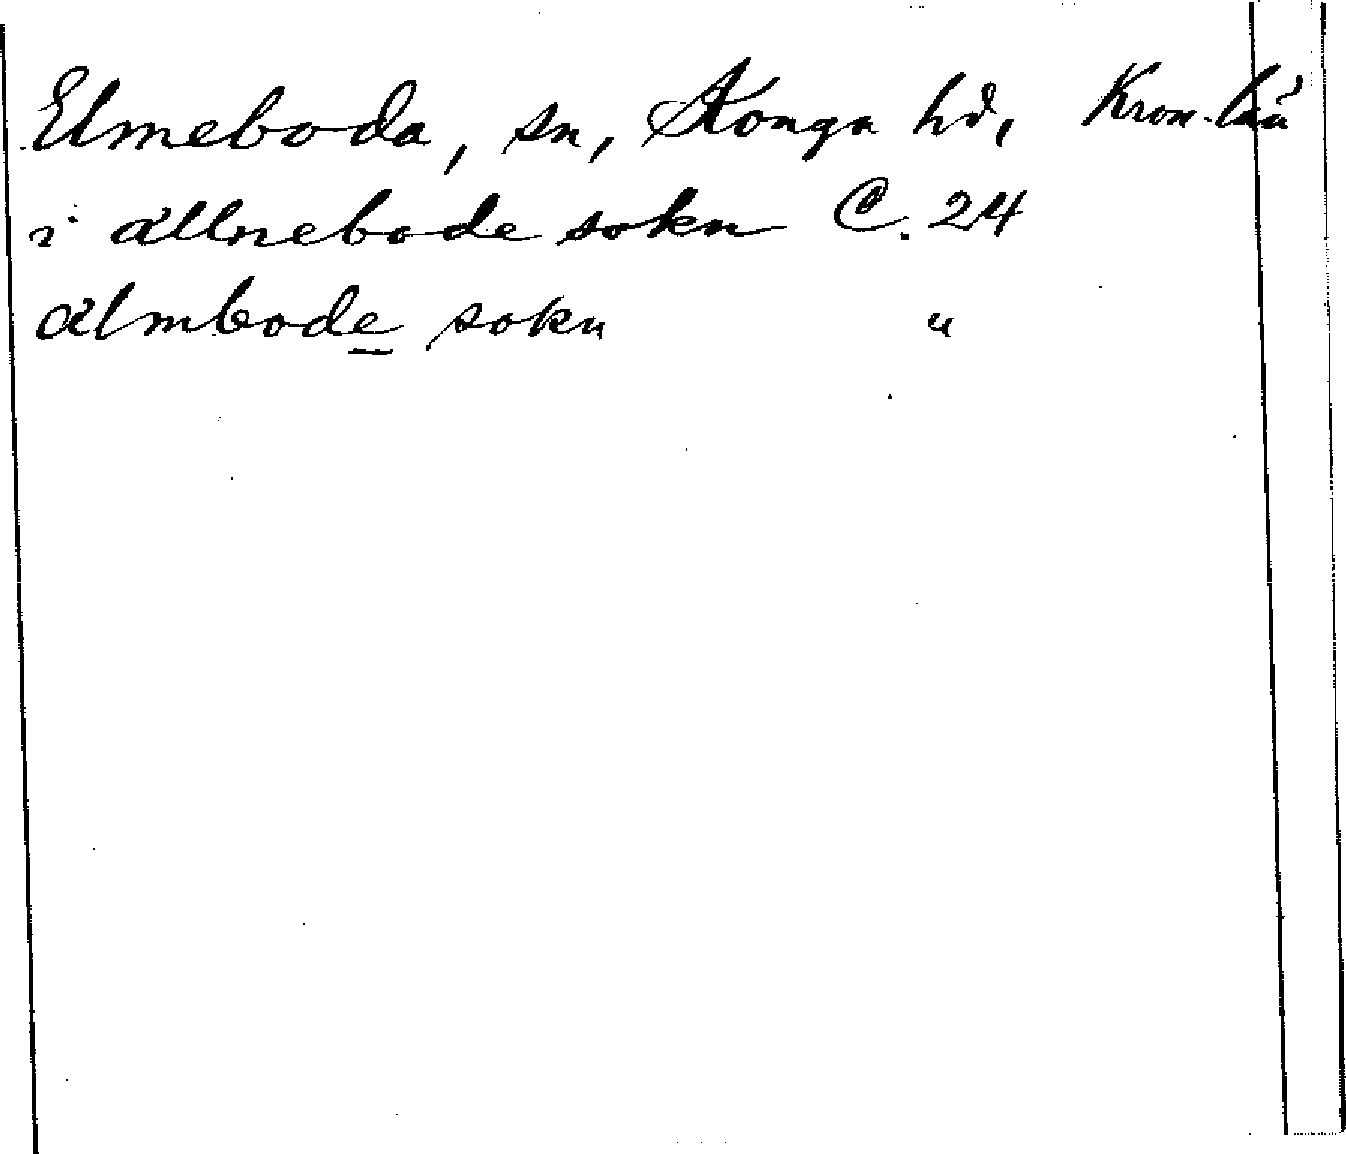 Elmeboda, sn, Konga hd, Kron. län
i ällnebode sokn C. 24
älmbode sokn "